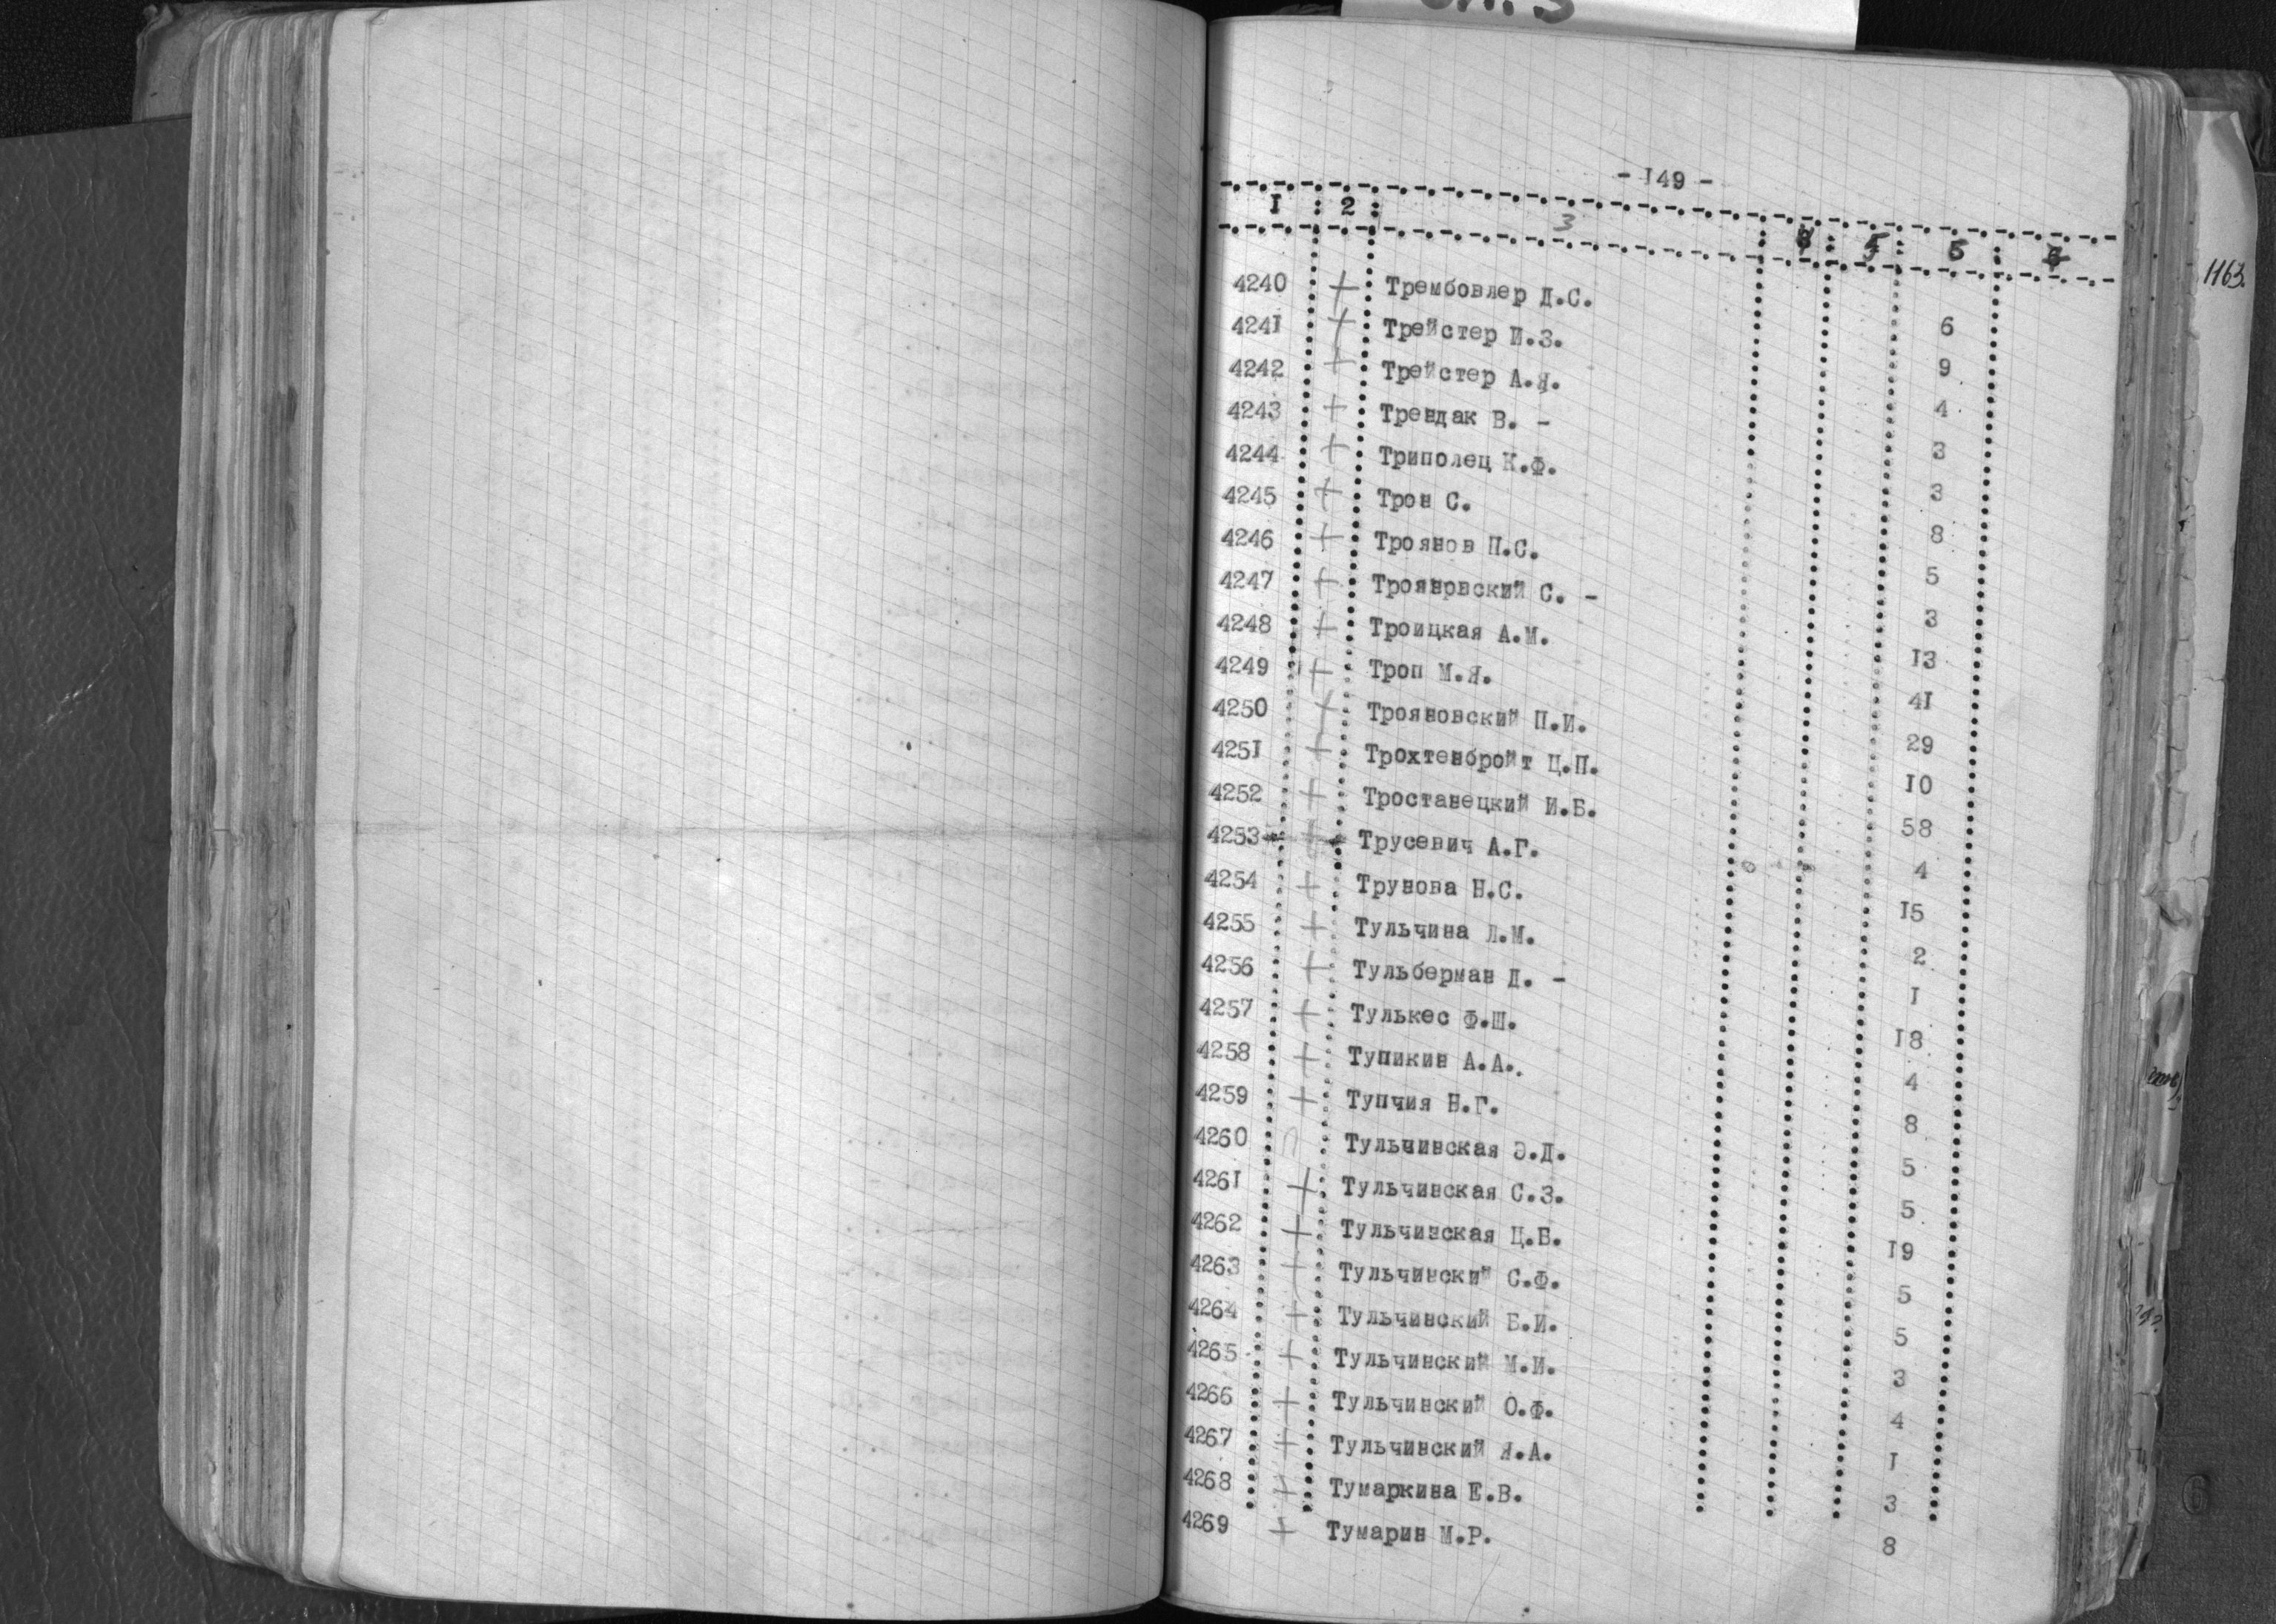 - I49 -
I : 2 : 3 : 4 : 5 : 6 : 7
II63.
4240 + Трембовлер Д.С. 6
424I + Трейстер И.З. 9
4242 + Трейстер А.Я. 4
4243 + Трендак В. - 3
4244 + Триполец К.Ф. 3
4245 + Трон С. 8
4246 + Троянов П.С. 5
4247 + Трояновский С. - 3
4248 + Троицкая А.М. I3
4249 + Троп М.Я. 4I
4250 + Трояновский П.И. 29
425I + Трохтенбройт Ц.П. I0
4252 + Тростанецкий И.Б. 58
4253 + Трусевич А.Г. 4
4254 + Трунова Н.С. I5
4255 + Тульчина Л.М. 2
4256 + Тульберман Д. - I
4257 + Тулькес Ф.Ш. I8
4258 + Тупикин А.А. 4
4259 + Тупчия Н.Г. 8
4260 Тульчинская Э.Д. 5
426I + Тульчинская С.З. 5
4262 + Тульчинская Ц.Б. I9
4263 + Тульчинский С.Ф. 5
4264 + Тульчинский Б.И. 5
4265 + Тульчинский М.И. 3
4266 + Тульчинский О.Ф. 4
4267 + Тульчинский Я.А. I
4268 + Тумаркина Е.В. 3
4269 + Тумарин М.Р. 8